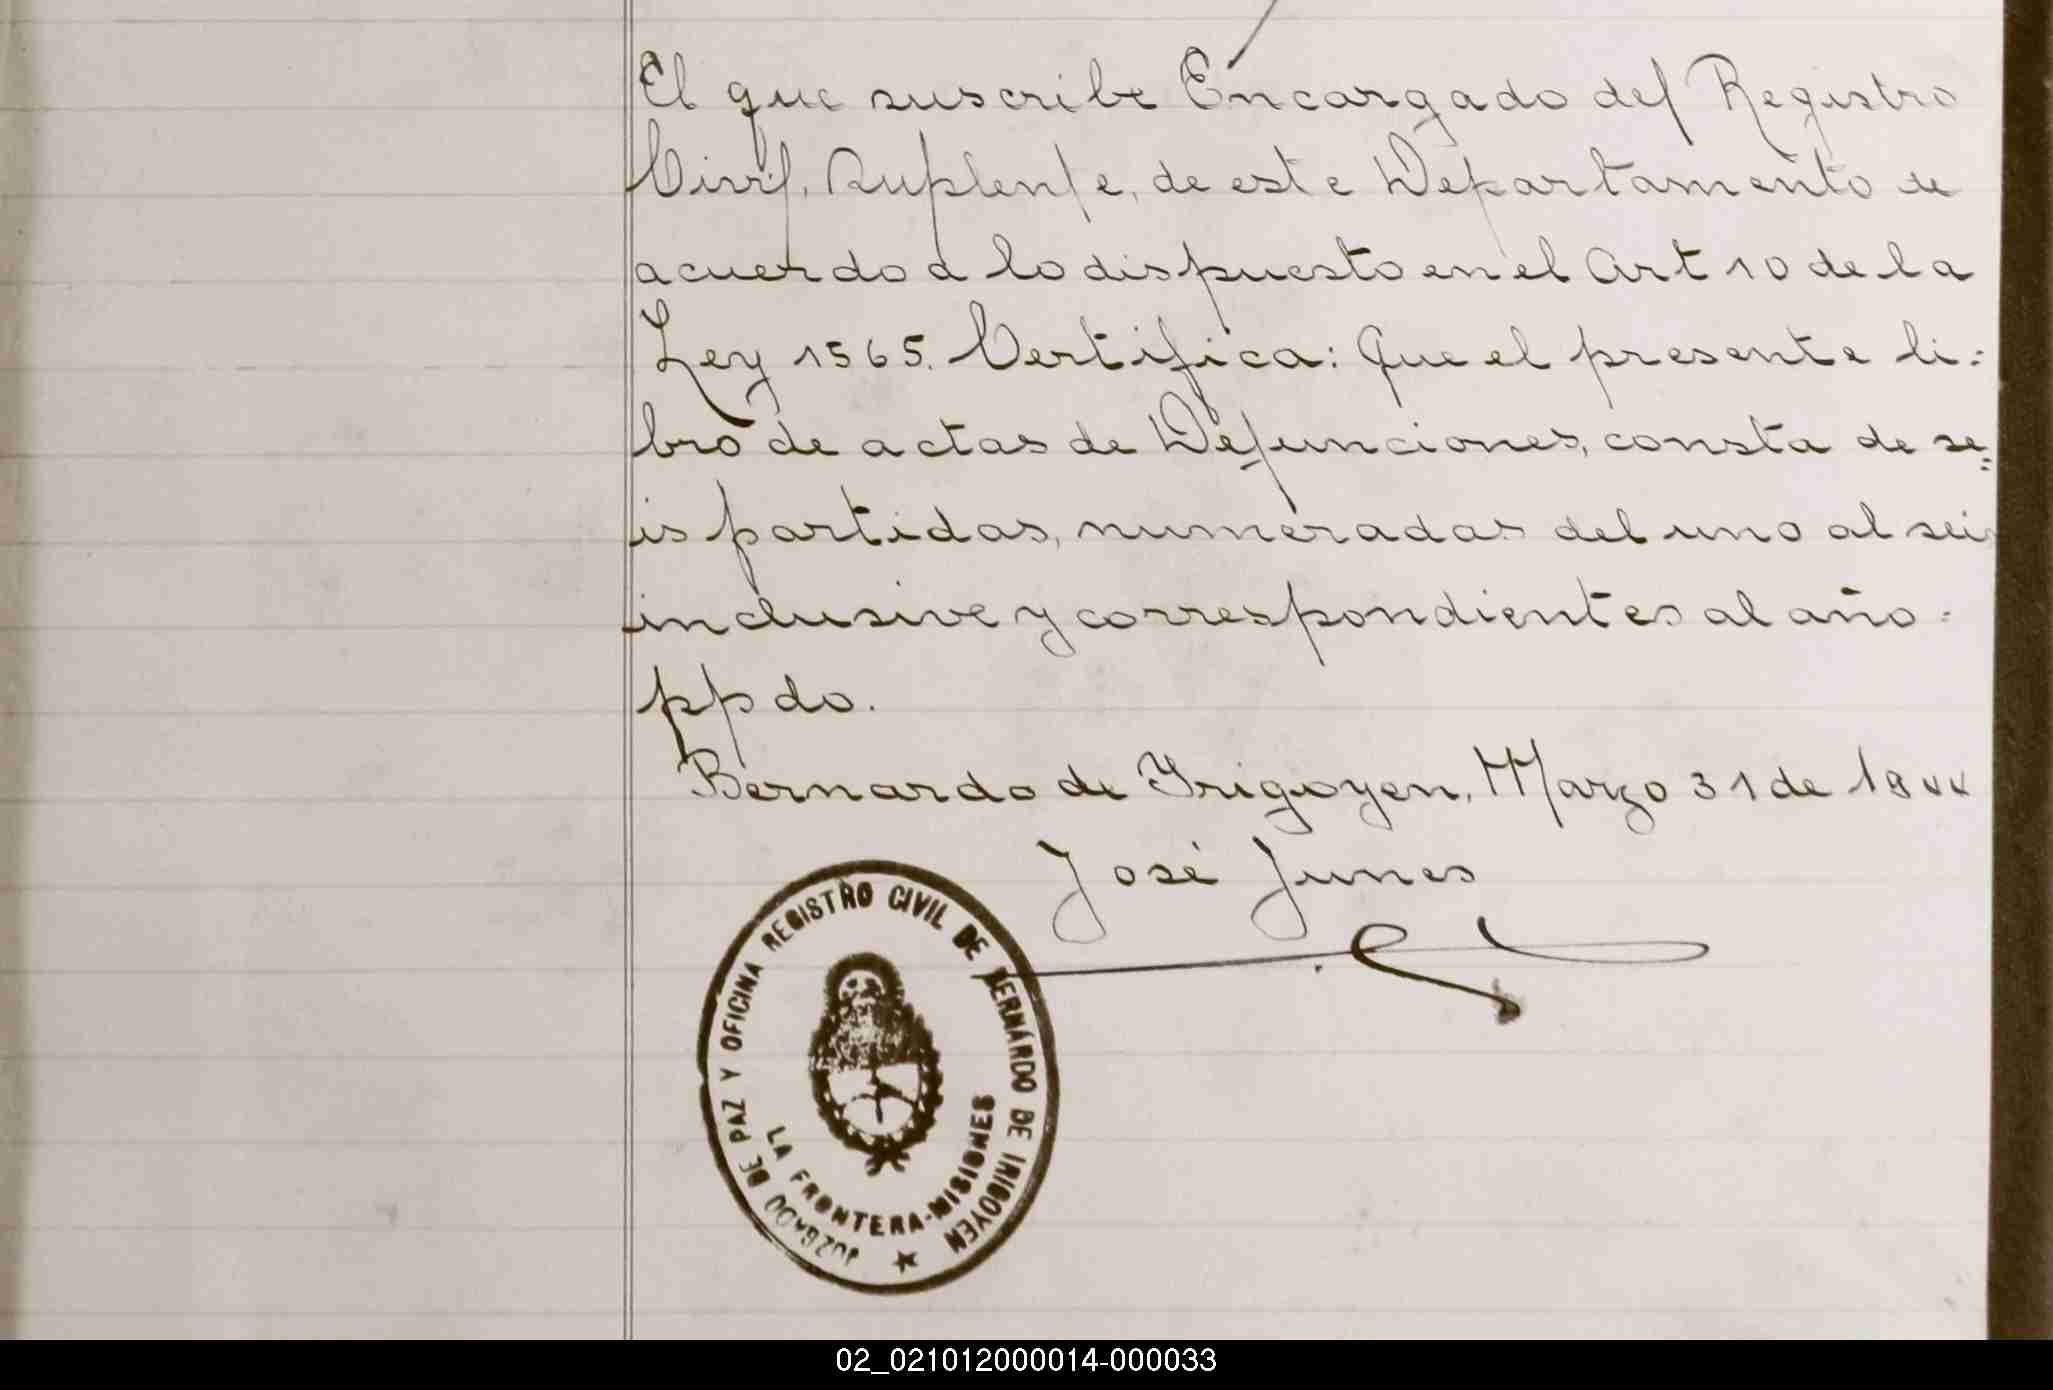 El que suscribe Encargado del Registro
Civil, Suplente, de este Departamento de
acuerdo a lo dispuesto en el Art 10 de la
Ley 1565. Certifica: Que el presente li=
bro de actas de Defunciones, consta de se=
is partidas, numeradas del uno al seis
inclusive y correspondientes al año =
ppdo.
Bernardo de Irigoyen, Marzo 31 de
José Junes
JUZGADO DE PAZ Y OFICINA REGISTRO CIVIL DE BERNARDO DE IRIGOYEN
LA FRONTERA-MISIONES
02_021012000014-000033